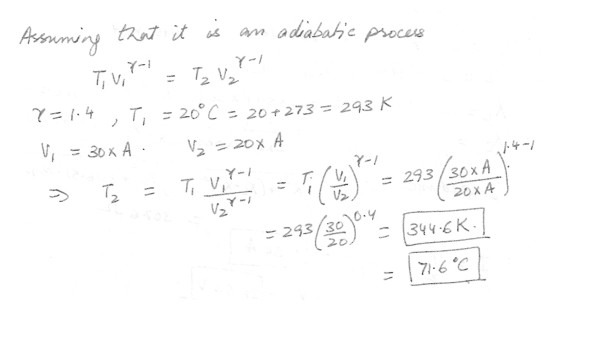 Assuming that it is an adiabatic process
T₁V₁^γ-1 = T₂V₂^γ-1
γ = 1.4 , T₁ = 20°C = 20+273 = 293 K
V₁ = 30 x A . V₂ = 20 x A
⇒ T₂ = T₁ V₁^γ-1 / V₂^γ-1 = T₁ (V₁/V₂)^γ-1 = 293 (30 x A / 20 x A)^1.4-1
= 293 (30/20)^0.4 = 344.6 K.
= 71.6 °C